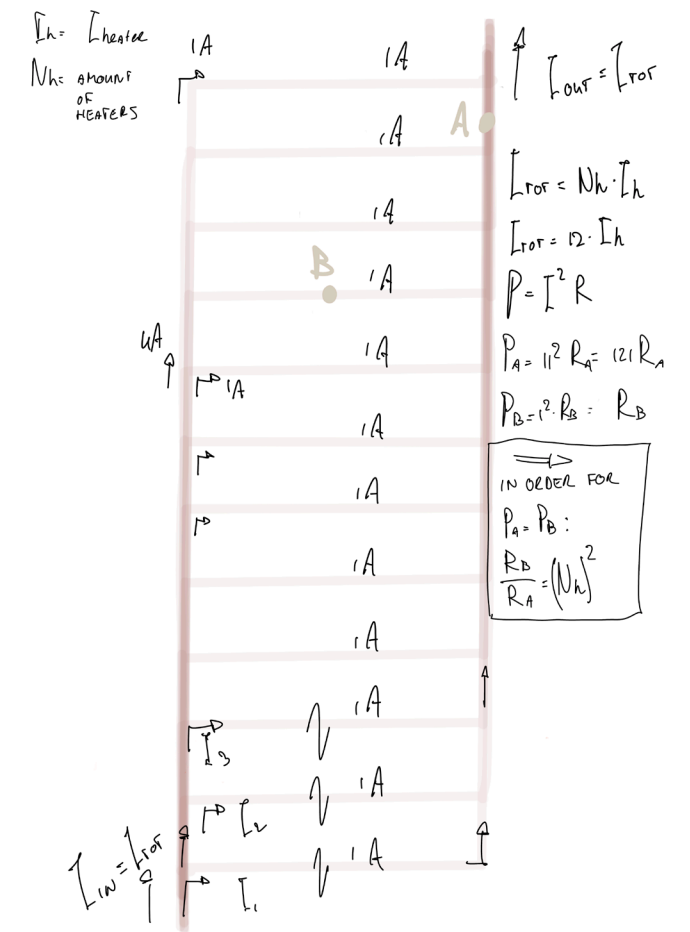 Ih = Iheater
Nh = AMOUNT
OF
HEATERS
1A
1A
Iout = Itot
A
1A
Itot = Nh · Ih
1A
Itot = 12 · Ih
B
1A
P = I² R
4A
1A
PA = 11² RA = 121 RA
1A
PB = 1² · RB = RB
1A
⟹
IN ORDER FOR
PA = PB :
RB/RA = (Nh)²
1A
1A
1A
1A
I3
1A
I2
IIN = Itot
1A
I1